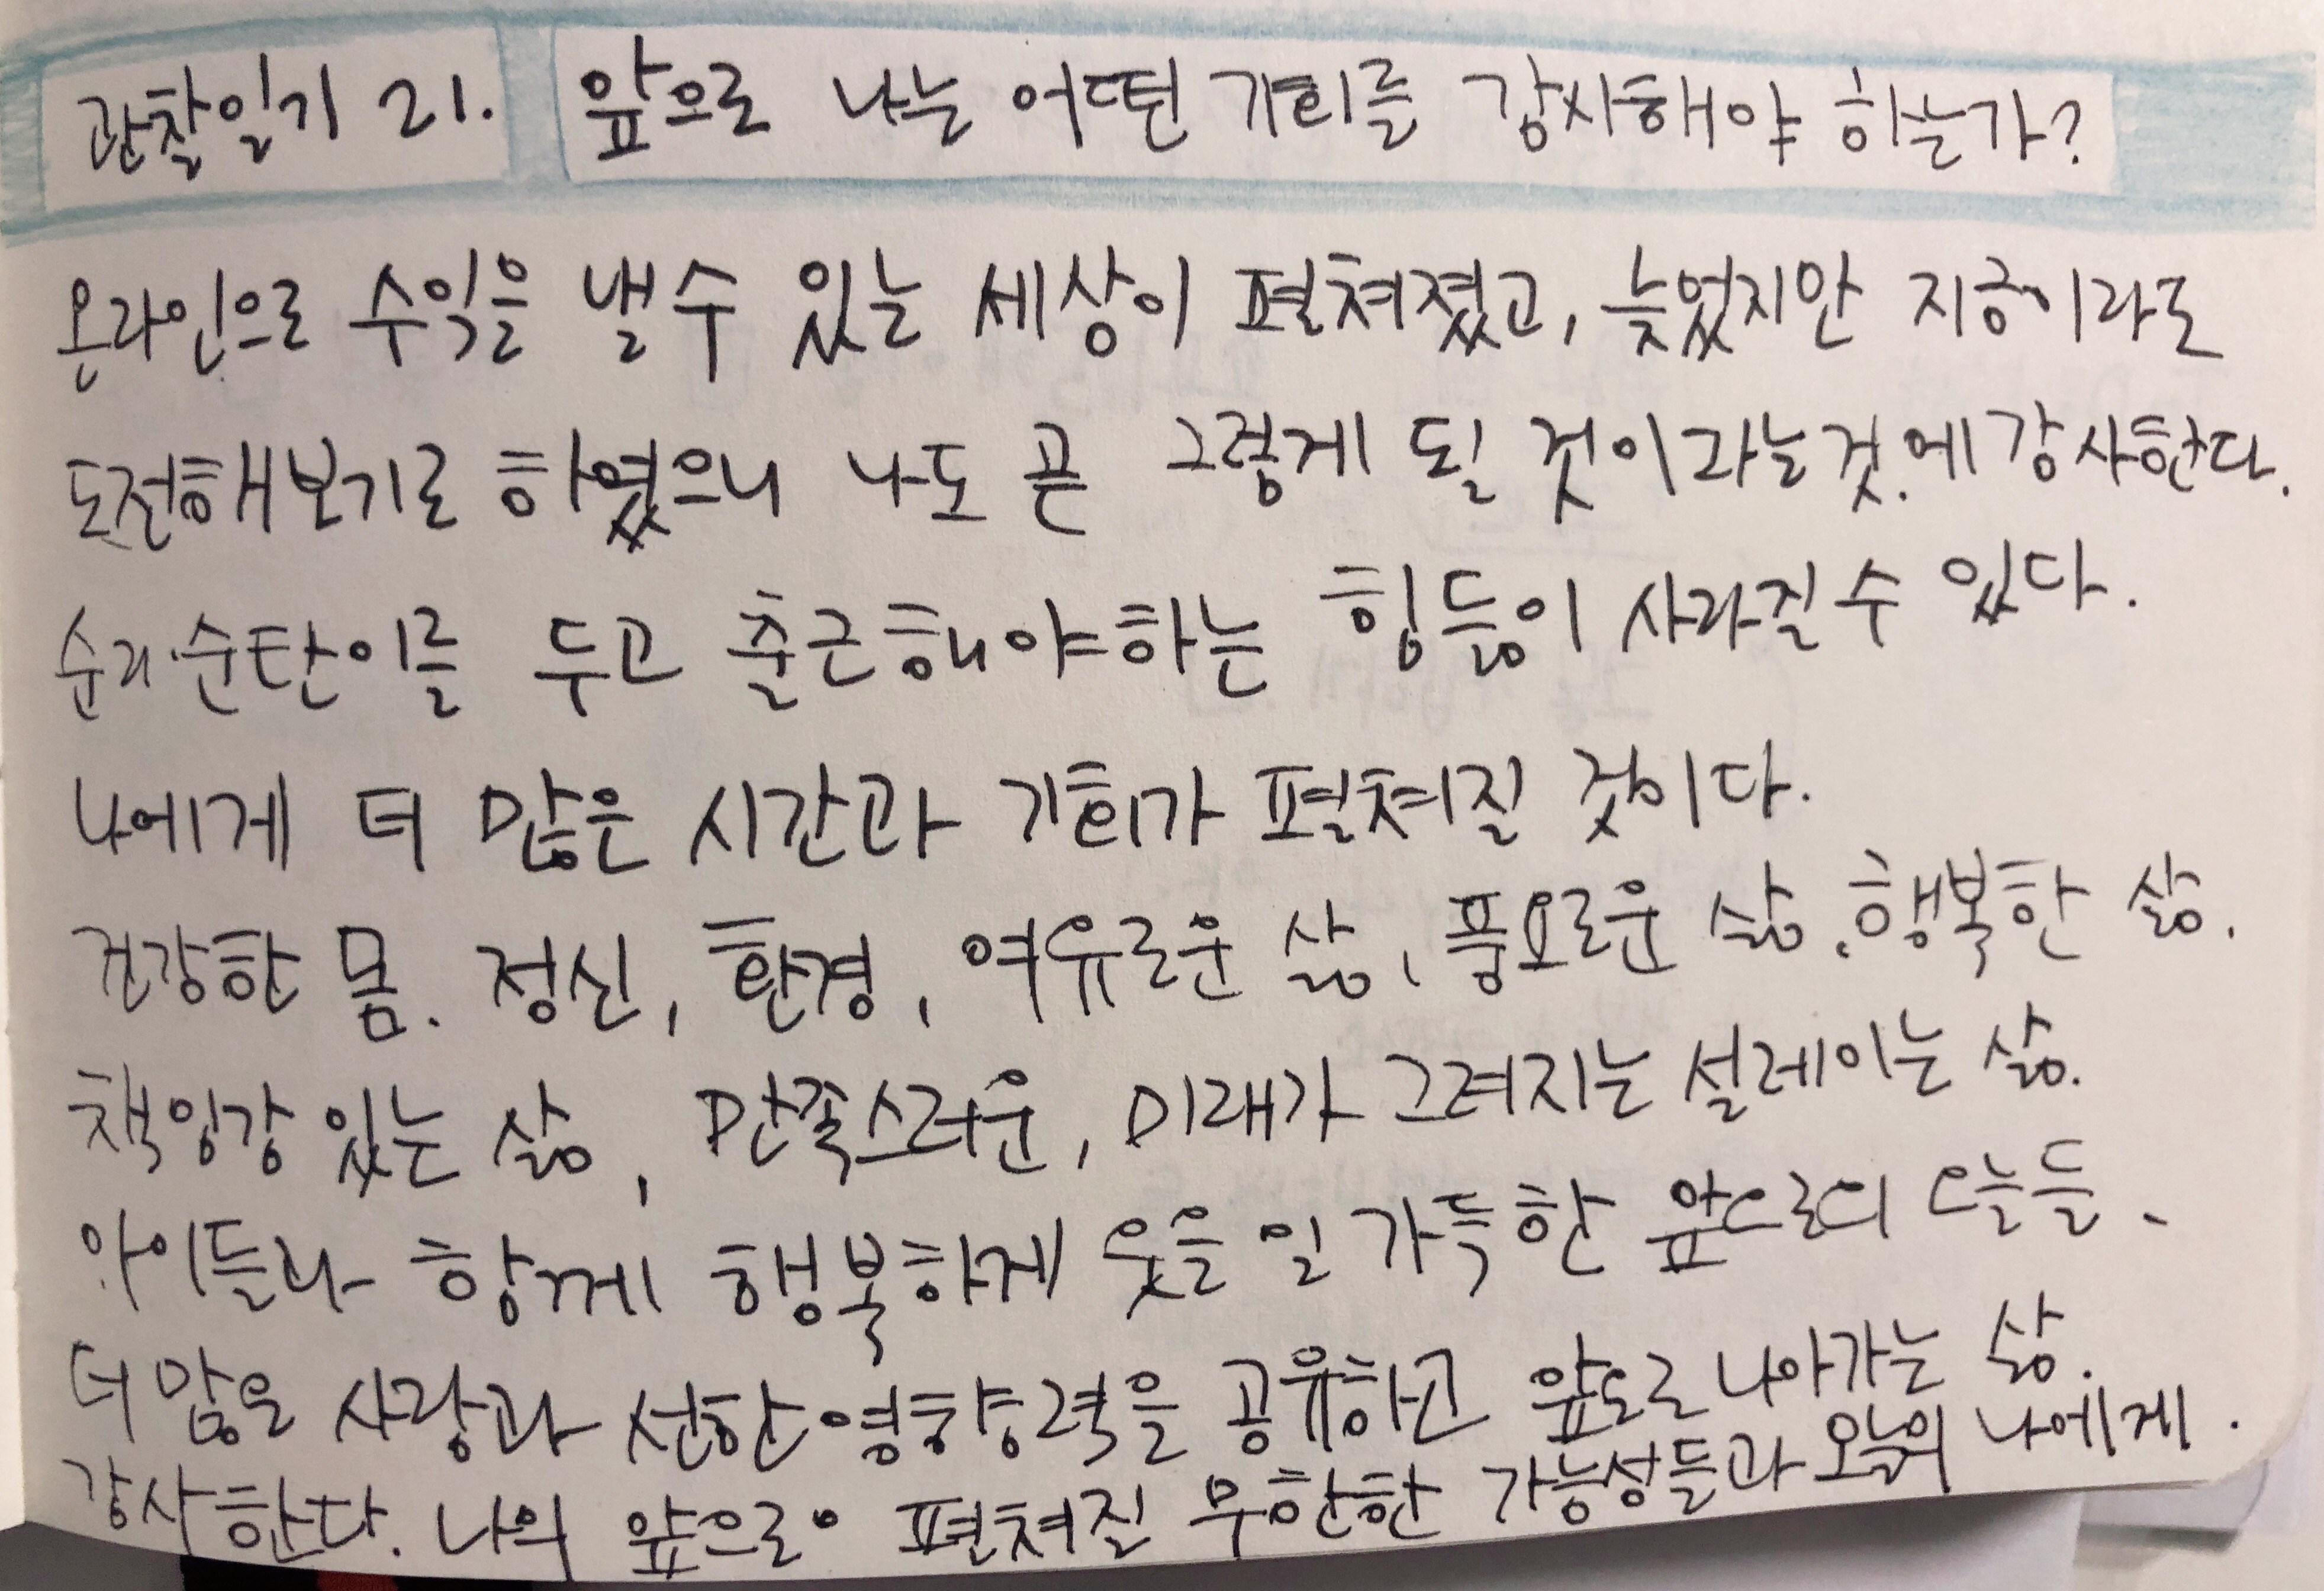 관찰일기 21. 앞으로 나는 어떤 기회를 감사해야 하는가?
온라인으로 수익을 낼수 있는 세상이 펼쳐졌고, 늦었지만 지금이라도
도전해보기로 하였으니 나도 곧 그렇게 될 것이라는것.에 감사한다.
순리·순탄이를 두고 출근해야하는 힘듦이 사라질수 있다.
나에게 더 많은 시간과 기회가 펼쳐질 것이다.
건강한 몸. 정신, 환경, 여유로운 삶, 풍요로운 삶. 행복한 삶.
책임감 있는 삶, 만족스러운, 미래가 그려지는 설레이는 삶.
아이들과 함께 행복하게 웃을 일 가득한 앞으로의 오늘들.
더 많은 사랑과 선한영향력을 공유하고 앞으로 나아가는 삶.
감사한다. 나의 앞으로 펼쳐질 무한한 가능성들과 오늘의 나에게.